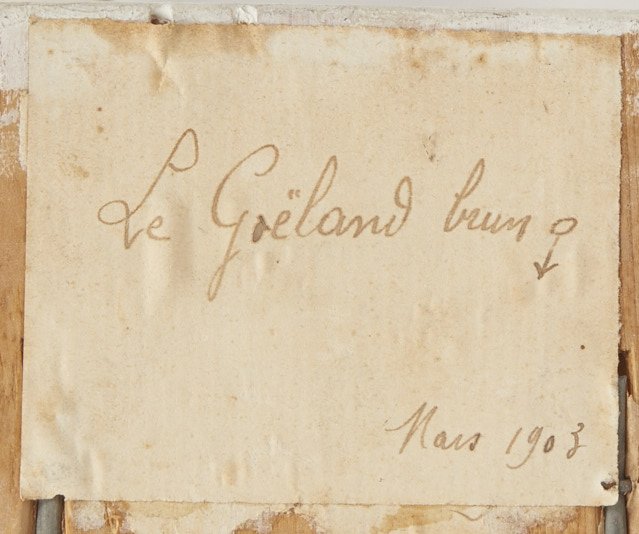 Le Goëland brun ♂
Mars 1903